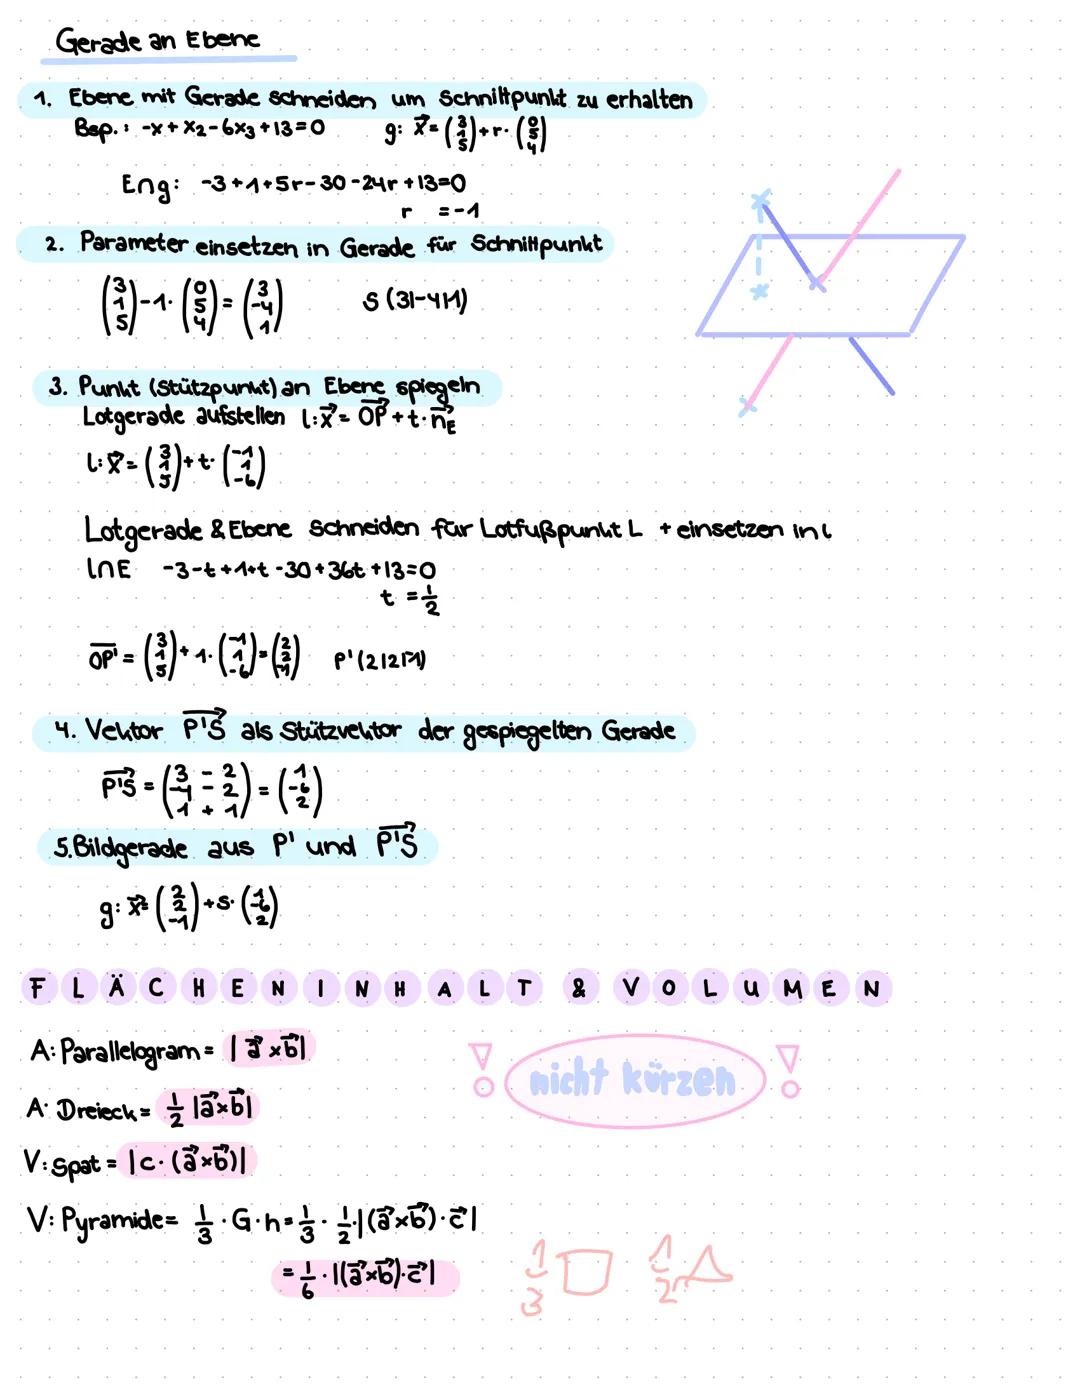 Gerade an Ebene
1. Ebene mit Gerade schneiden um Schnittpunkt zu erhalten
Bsp.: -x + x₂ - 6x₃ + 13 = 0 g: x⃗ = (3 1 5) + r · (0 5 4)
E∩g: -3 + 1 + 5r - 30 - 24r + 13 = 0
r = -1
2. Parameter einsetzen in Gerade für Schnittpunkt
(3 1 5) - 1 · (0 5 4) = (3 -4 1) S (3|-4|1)
3. Punkt (Stützpunkt) an Ebene spiegeln
Lotgerade aufstellen l: x⃗ = OP⃗ + t · n⃗E
l: x⃗ = (3 1 5) + t · (-1 1 -6)
Lotgerade & Ebene schneiden für Lotfußpunkt L + einsetzen in l
l∩E -3 - t + 1 + t - 30 + 36t + 13 = 0
t = 1/2
OP' = (3 1 5) + 1 · (-1 1 -6) = (2 2 -1) P' (2|2|-1)
4. Vektor P'S⃗ als Stützvektor der gespiegelten Gerade
P'S⃗ = (3 - 2 -4 - 2 1 + 1) = (1 -6 2)
5. Bildgerade aus P' und P'S⃗
g: x⃗ = (2 2 -1) + s · (1 -6 2)
FLÄCHENINHALT & VOLUMEN
A: Parallelogram = |a⃗ × b⃗|
nicht kürzen
A: Dreieck = 1/2 |a⃗ × b⃗|
V: Spat = |c · (a⃗ × b⃗)|
V: Pyramide = 1/3 · G · h = 1/3 · 1/2 · |(a⃗ × b⃗) · c⃗|
= 1/6 · |(a⃗ × b⃗) · c⃗|
1/3 1/2